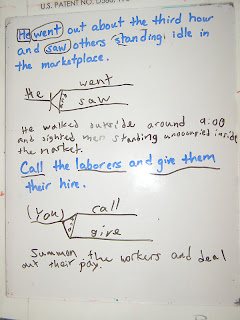 U.S. PATENT NO.
He went out about the third hour
and saw others standing idle in
the marketplace.
went
He
and
saw
He walked outside around 9:00
and sighted men standing unoccupied inside
the market.
Call the laborers and give them
their hire.
(You) call
and
give
Summon the workers and deal
out their pay.